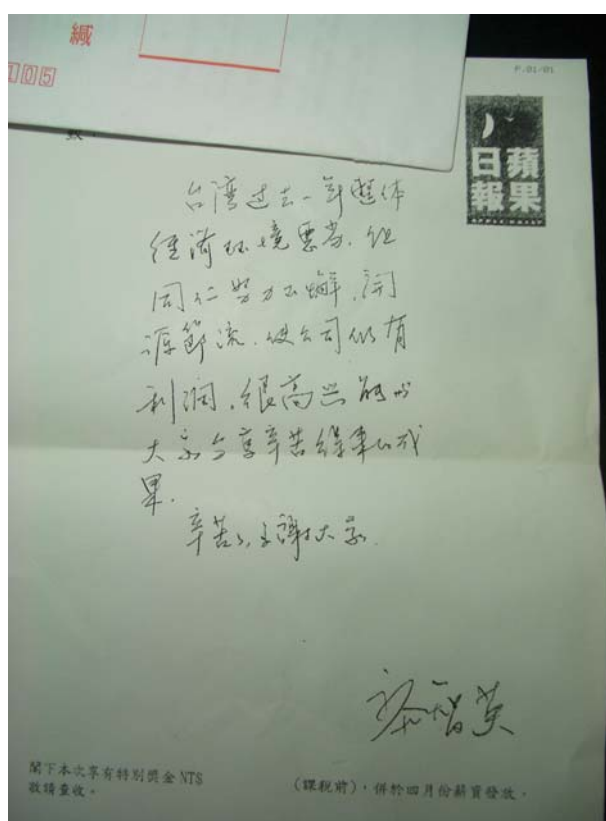 緘
105
P.01/01
蘋果
日報
台湾过去一年整体
經濟环境惡劣.但
同仁努力不懈.開
源節流.使公司仍有
利润.很高兴能与
大家分享辛苦得来的成
果.
辛苦了.多謝大家.
黎智英
閣下本次享有特別獎金 NT$
(課稅前),併於四月份薪資發放。
敬請查收。